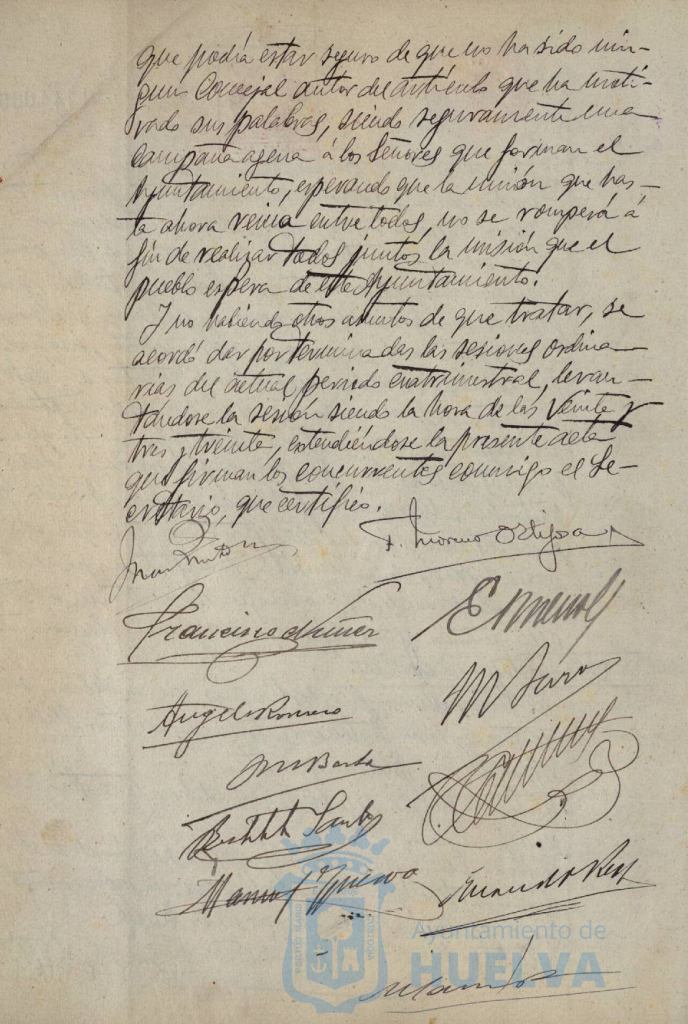 que podía estar seguro de que no ha sido nin-
gun Concejal autor del artículo que ha moti-
vado sus palabras, siendo seguramente una
campaña agena á los Señores que forman el
Ayuntamiento, esperando que la unión que has-
ta ahora reina entre todos, no se romperá á
fin de realizar todos juntos la misión que el
pueblo espera de este Ayuntamiento.
Y no habiendo otros asuntos de que tratar, se
acordó dar por terminadas las sesiones ordina-
rias del actual periodo cuatrimestral, levan-
tandose la sesión siendo la hora de las veinte y
tres y treinta, extendiéndose la presente acta
que firman los concurrentes conmigo el Se-
cretario, que certifico.
F. Moreno Ortigosa
Francisco Nuñez
Angel Romero
M Barba
Ayuntamiento de
HUELVA